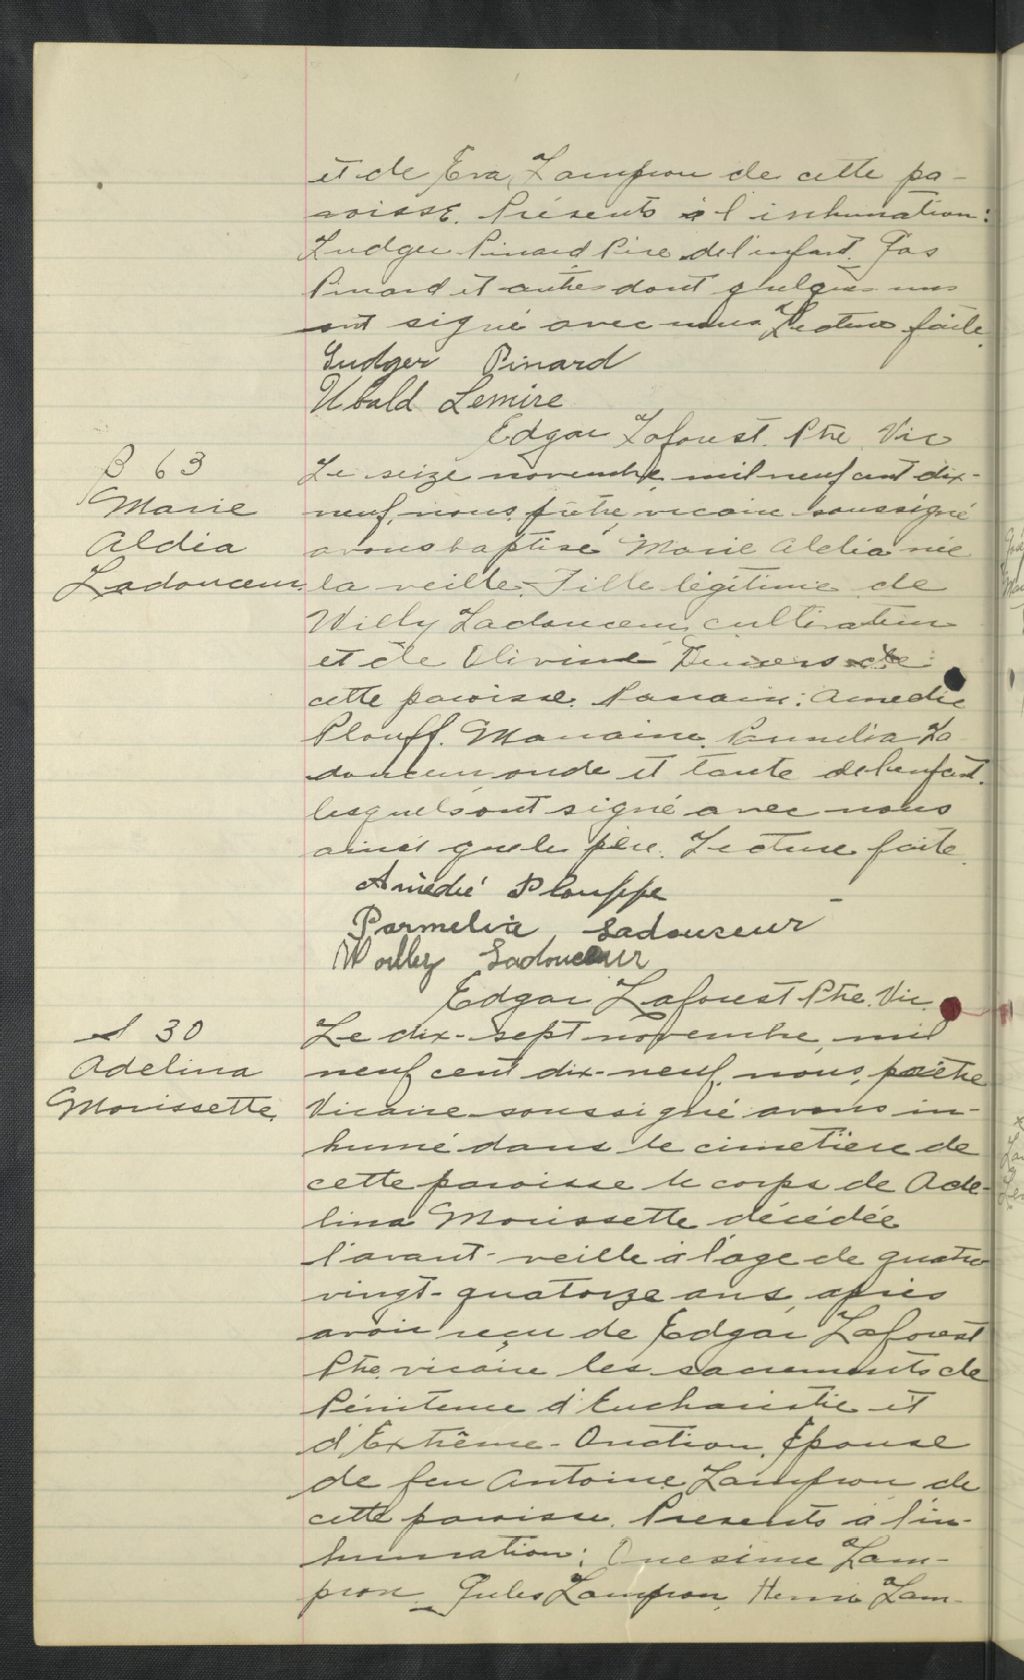 et de Eva Lampron de cette pa-
roisse. Présents à l'inhumation:
Ludger Pinard Père de l'enfant. Jos
Pinard et autres dont quelques uns
ont signé avec nous Lecture faite.
Ludger Pinard
Ubald Lemire
Edgar Laforest. Ptre Vic
B 63
Marie
Aldia
Ladouceur.
Le seize novembre mil neuf cent dix-
neuf, nous, prêtre vicaire soussigné
avons baptisé Marie Aldia née
la veille. Fille légitime de
Willy Ladouceur cultivateur
et de Olivine de
cette paroisse. Parrain: Amedie
Plouff. Marraine. Parmelia La
douceur oncle et tante de l'enfant.
lesquels ont signé avec nous
ainsi que le père. Lecture faite.
Amédé Plouffe
Parmelia Ladouseur
Ladouceur
Edgar Laforest Ptre. Vic.
S 30
Adelina
Morissette.
Le dix-sept novembre, mil
neuf cent dix-neuf, nous, prêtre
Vicaire soussigné avons in-
humé dans le cimetière de
cette paroisse le corps de Ade-
lina Morissette décédée
l'avant-veille à l'age de quatre
vingt-quatorze ans, après
avoir reçu de Edgar Laforest
Ptre. vicaire les sacrements de
Pénitence d'Eucharistie et
d'Extrême-Onction. Épouse
de feu Antoine Lampron de
cette paroisse. Presents à l'in-
humation: Onesime Lam-
pron Jules Lampron, Henri Lam-